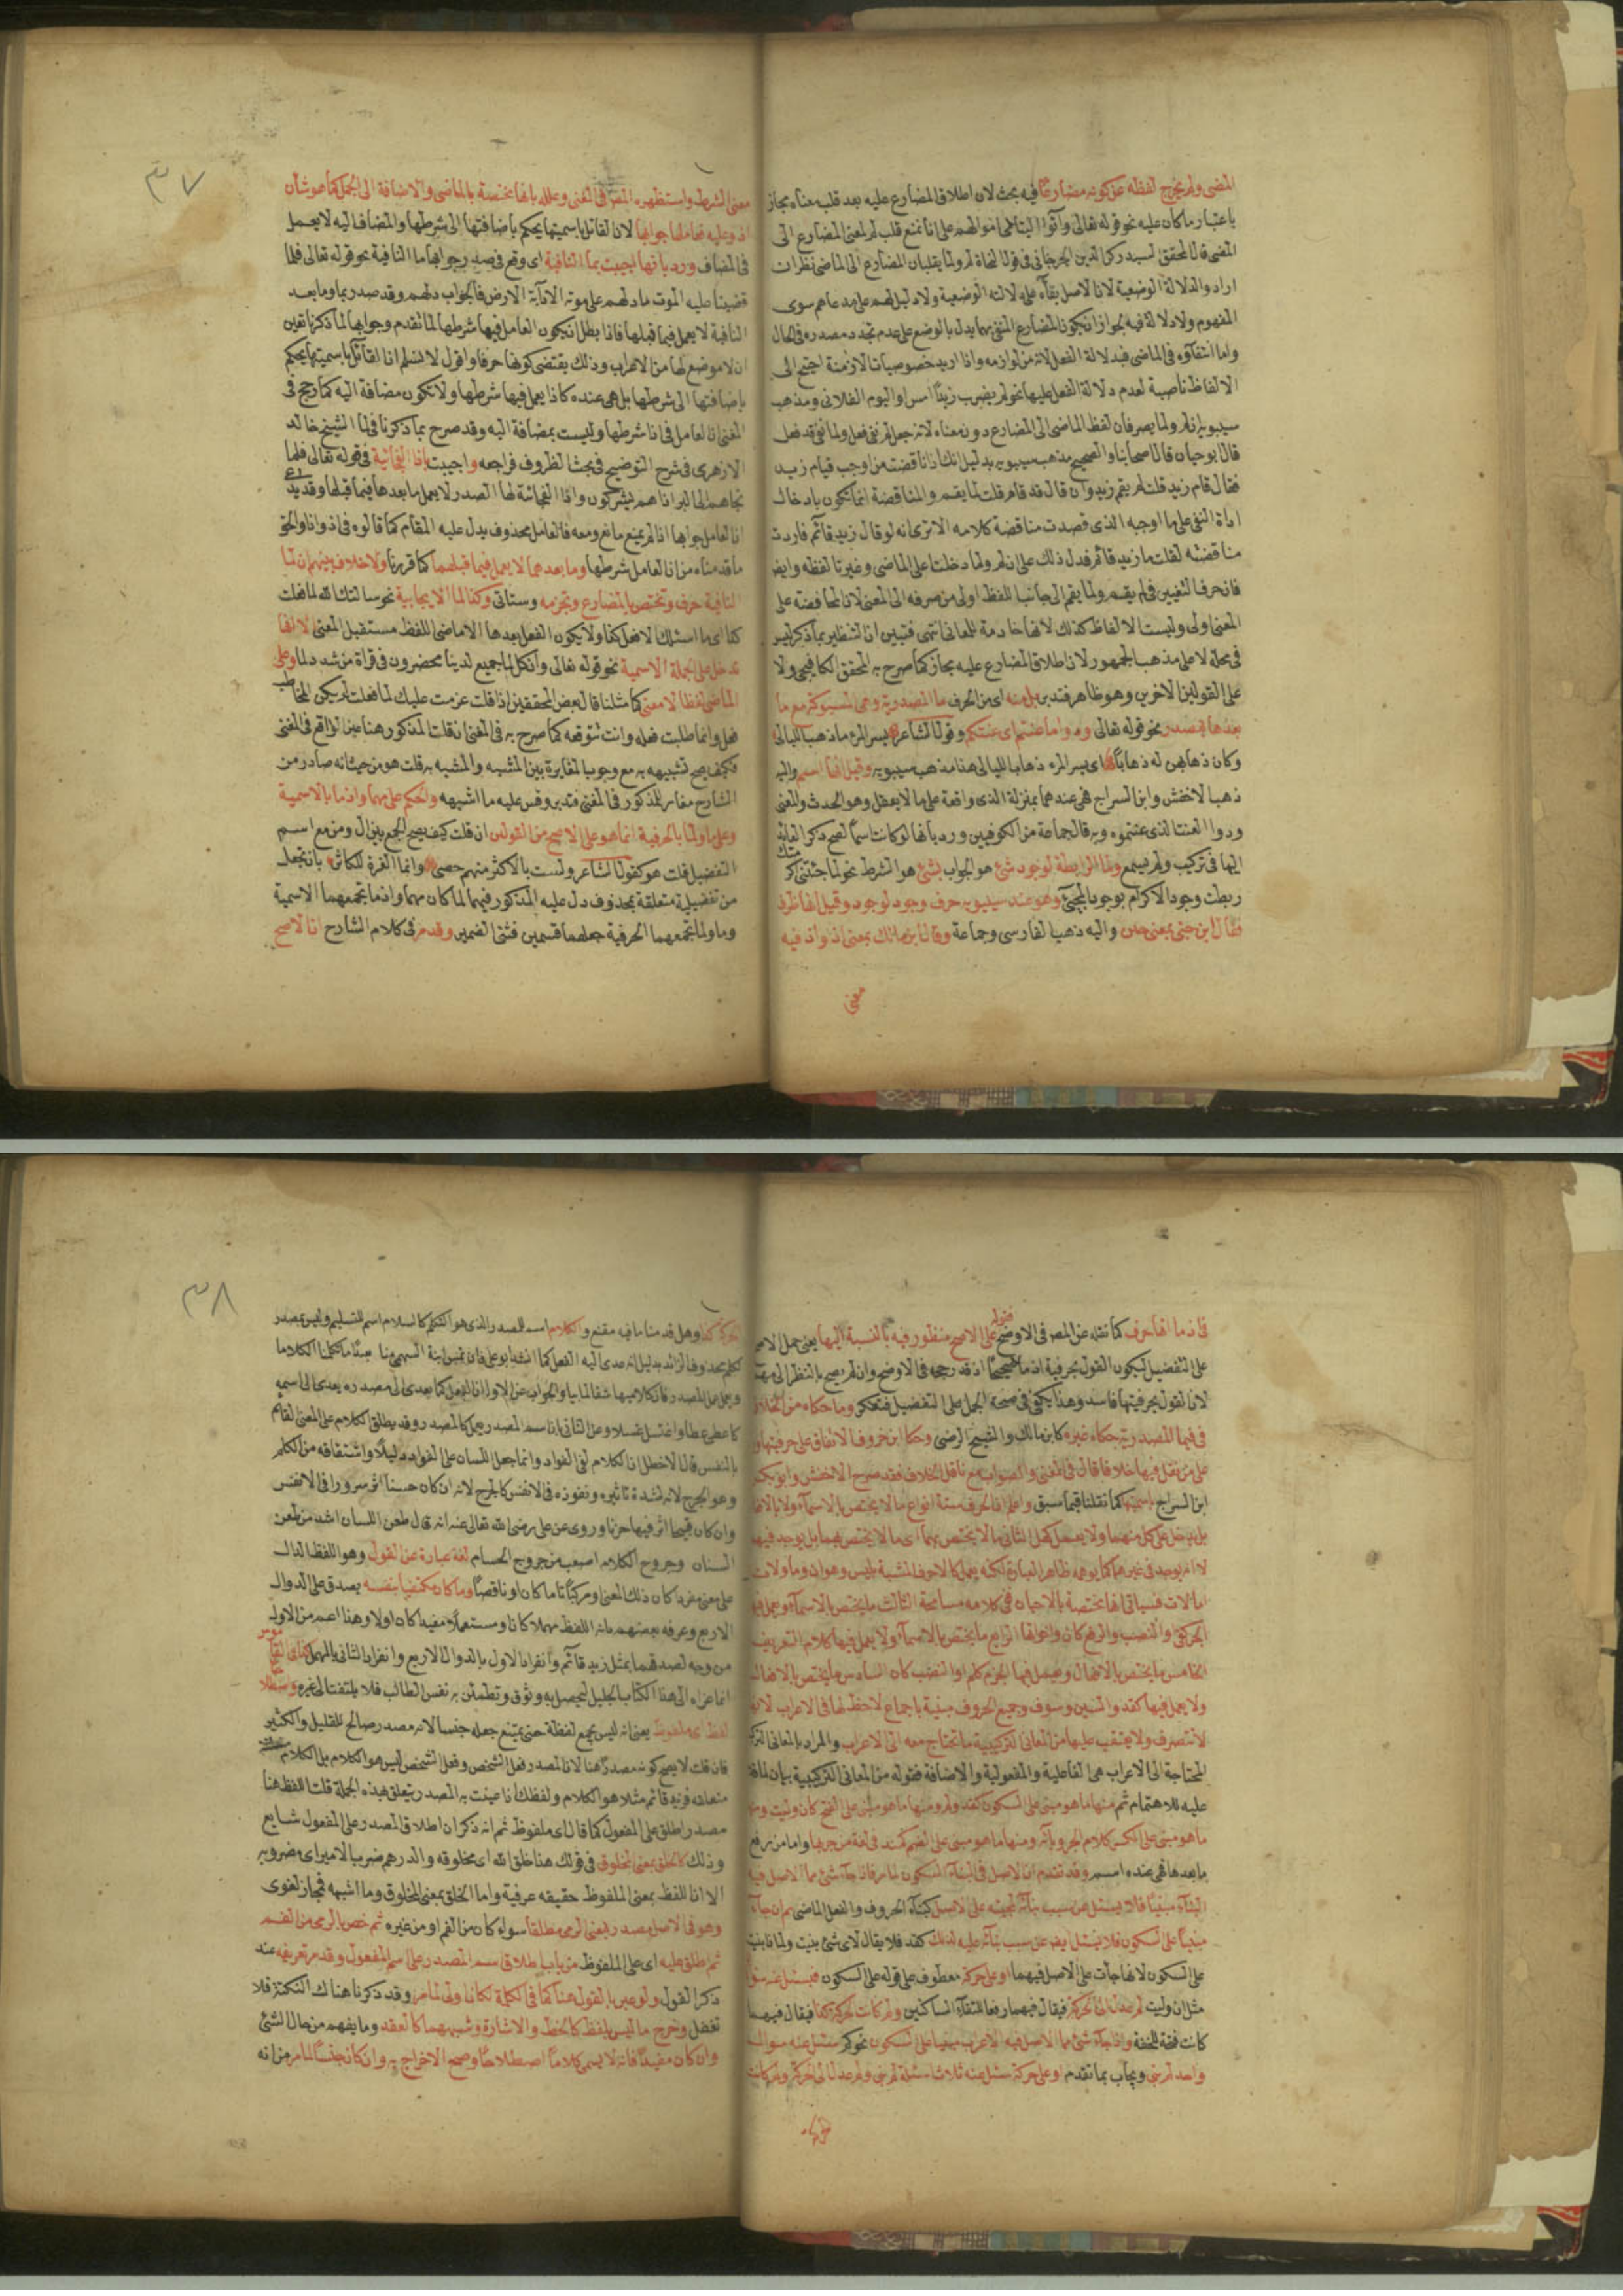 المضى ولم يخرج لفظه عن كونه مضارعا فيه بحث لان اطلاق المضارع عليه بعد قلب معناه مجاز
باعتبار ما كان عليه نحو قوله تعالى وآتوا اليتامى اموالهم على انا نمنع قلب لم لمعنى المضارع الى
المضى قال المحقق السيد ركن الدين الجرجانى فى قول النحاة لم ولما يقلبان المضارع الى الماضى نظر ان
ارادوا لدلالة الوضعية لان الاصل بقاء على دلالته الوضعية ولا دليل لهم على مدعاهم سوى
المفهوم ولا دلالة فيه لجواز ان يكون المضارع المنفى بهما يدل بالوضع على عدم تجدد مصدره فى الحال
واما انتفاؤه فى الماضى فبدلالة الفعل لانه من لوازمه واذا اريد خصوصيات الازمنة احتيج الى
الالفاظ ناصبة لعدم دلالة الفعل عليها نحو لم يضرب زيدا امس او اليوم الفلانى ومذهب
سيبويه ان لم ولما يصرفان لفظ الماضى الى المضارع دون معناه لانه جعل لم نفى فعل ولما نفى قد فعل
قال ابو حيان قال اصحابنا والصحيح مذهب سيبويه بدليل انك اذا ناقضت من اوجب قيام زيد
فقال قام زيد قلت لم يقم زيد وان قال قد قام قلت لما يقم والمناقضة انما تكون بادخال
اداة النفى على ما اوجبه الذى قصدت مناقضة كلامه الا ترى انه لو قال زيد قائم فاردت
مناقضته لقلت ما زيد قائم فدل ذلك على ان لم ولما دخلتا على الماضى وغيرتا لفظه وايضا
فان حرف التغيير فى لم يقم ولما يقم الى جانب اللفظ اولى من صرفه الى المعنى لان المحافظة على
المعنى اولى وليست الالفاظ كذلك لانها خادمة للمعانى انتهى فتبين ان التنظير بما ذكر ليس
فى محله لا على مذهب الجمهور لان اطلاق المضارع عليه مجاز كما صرح به المحقق الكافيجى ولا
على القولين الاخرين وهو ظاهر فتدبر بل منه اى من الحرف ما المصدرية وهى المسبوكة مع ما
بعدها بمصدر نحو قوله تعالى ودوا ما عنتم اى عنتكم وقول الشاعر يسر المرء ما ذهب الليالى
وكان ذهابهن له ذهابا اى يسر المرء ذهاب الليالى هذا مذهب سيبويه وقيل انها اسم واليه
ذهب الاخفش وابن السراج فهى عندهما بمنزلة الذى واقعة على ما لا يعقل وهو الحدث والمعنى
ودوا العنت الذى عنتموه وبه قال جماعة من الكوفيين ورد بانها لو كانت اسما لصح ذكر العائد
اليها فى تركيب ولم يسمع ولما الرابطة لوجود شئ هو الجواب بشئ هو الشرط نحو لما جئتنى اكرمتك
ربطت وجود الاكرام بوجود المجئ وهو عند سيبويه حرف وجود لوجود وقيل انها ظرف
فقال ابن جنى بمعنى حين واليه ذهب الفارسى وجماعة وقال ابن مالك بمعنى اذ واذ فيه
معنى
٣٧
معنى الشرط واستظهره المص فى المغنى وعلله بانها مختصة بالماضى والاضافة الى الجمل كما هو شأن
اذ وعليه فعاملها جوابها لان القائل باسميتها يحكم باضافتها الى شرطها والمضاف اليه لا يعمل
فى المضاف ورد بانها اجيبت بما النافية اى وقع فى صدر جوابها ما النافية نحو قوله تعالى فلما
قضينا عليه الموت ما دلهم على موته الا دآبة الارض فالجواب دلهم وقد صدر بما وما بعد
النافية لا يعمل فيما قبلها فاذا بطل ان يكون العامل فيها شرطها لما تقدم وجوابها لما ذكرنا تعين
ان لا موضع لها من الاعراب وذلك يقتضى كونها حرفا واقول لا نسلم ان القائل باسميتها يحكم
باضافتها الى شرطها بل هى عنده كاذا يعمل فيها شرطها ولا تكون مضافة اليه كما رجح فى
المغنى ان العامل فى اذا شرطها وليست بمضافة اليه وقد صرح بما ذكرنا فى لما الشيخ خالد
الازهرى فى شرح التوضيح فى بحث الظروف فراجعه واجيبت باذا الفجائية فى قوله تعالى فلما
نجاهم الى البر اذا هم يشركون واذا الفجائية لها الصدر لا يعمل ما بعدها فيما قبلها وقد يدعى
ان العامل جوابها اذا لم يمنع مانع ومعه فالعامل محذوف يدل عليه المقام كما قالوه فى اذ واذا والحق
ما قدمناه من ان العامل شرطها وما بعدهما لا يعمل فيما قبلهما كما قررنا ولا خلاف بينهم ان لما
النافية حرف وتختص بالمضارع وتجزمه وستاتى وكذا لما الايجابية نحو سالتك الله لما فعلت
كذا اى ما اسئلك الا فعل كذا ولا يكون الفعل بعدها الا ماضى اللفظ مستقبل المعنى الا انها
تدخل على الجملة الاسمية نحو قوله تعالى وان كل لما جميع لدينا محضرون فى قراة من شدد لما وعلى
الماضى لفظا لا معنى كما مثلنا قال بعض المحققين اذا قلت عزمت عليك لما فعلت لم يكن المخاطب
فعل وانما طلبت فعله وانت تتوقعه كما صرح به فى المغنى ان قلت المذكور هنا عين الواقع فى المغنى
فكيف يصح تشبيهه به مع وجوب المغايرة بين المشبه والمشبه به قلت هو من حيث انه صادر من
الشارح مغاير للمذكور فى المغنى فتدبر وقس عليه ما اشبهه والحكم على مهما واذما بالاسمية
وعلى ما ولما بالحرفية انما هو على الاصح من القولين ان قلت كيف يصح الجمع بين ال ومن مع اسم
التفضيل قلت هو كقول الشاعر ولست بالاكثر منهم حصى وانما العزة للكاثر بان تجعل
من تفضيلية متعلقة بمحذوف دل عليه المذكور فيهما لما كان مهما واذما تجمعهما الاسمية
وما ولما تجمعهما الحرفية جعلهما قسمين فثنى الضمير وقد مر فى كلام الشارح ان الاصح
فى اذما انها حرف كما نقله عن المص فى الاوضح فقوله على الاصح منظور فيه بالنسبة اليها يعنى حمل الاصح
على التفضيل ليكون القول بحرفية اذما صحيحا اذ قد رجحه فى الاوضح وان لم يصح بالنظر الى مهما
لان القول بحرفيتها فاسد وهذا يكفى فى صحة الحمل على التفضيل فتفكر وما حكاه من الخلاف
فى فيما المصدرية حكاه غيره كابن مالك والشيخ الرضى وحكا ابن خروف الاتفاق على حرفيتها ورد
على من نقل فيها خلافا قال فى المغنى والصواب مع ناقل الخلاف فقد صرح الاخفش وابو بكر
ابن السراج باسميتها كما نقلنا فيما سبق واعلم ان الحرف ستة انواع ما لا يختص بالاسماء ولا بالافعال
بل يدخل على كل منهما ولا يعمل كهل الثانى ما لا يختص بهما اى ما لا يختص بهما بل يوجد فيهما
لا انه يوجد فى غيرهما كما يوهمه ظاهر العبارة لكنه يعمل كالاحرف المشبهة بليس وهو ان وما ولات
اما لات فسياتى انها مختصة بالاحيان ففى كلامه مسامحة الثالث ما يختص بالاسماء ويعمل فيها
الجر كفى والنصب والرفع كان واخواتها الرابع ما يختص بالاسماء ولا يعمل فيها كلام التعريف
الخامس ما يختص بالافعال ويعمل فيها الجزم كلم او النصب كان السادس ما يختص بالافعال
ولا يعمل فيها كقد والسين وسوف وجميع الحروف مبنية باجماع لا حظ لها فى الاعراب لانها
لا تتصرف ولا يعتقب عليها من المعانى التركيبية ما تحتاج معه الى الاعراب والمراد بالمعانى التركيبية
المحتاجة الى الاعراب هى الفاعلية والمفعولية والاضافة فقوله من المعانى التركيبية بيان لما قدم
عليه للاهتمام ثم منها ما هو مبنى على السكون كقد ولم ومنها ما هو مبنى على الفتح كان وليت ومنها
ما هو مبنى على الكسر كلام الجر وبائه ومنها ما هو مبنى على الضم كمنذ فى لغة من جر بها واما من رفع
ما بعدها فهى عنده اسم وقد تقدم ان الاصل فى البناء السكون لما مر فاذا جاء شئ مما الاصل فيه
البناء مبنيا فلا يسئل عن سبب بنائه لمجيئه على الاصل كبناء الحروف والفعل الماضى ثم ان جاء
مبنيا على السكون فلا يسئل ايضا عن سبب بنائه عليه لذلك كقد فلا يقال لاى شئ بنيت ولماذا بنيت
على السكون لانها جاءت على الاصل فيهما او على حركة معطوف على قوله على السكون فيسئل عنه
مثل ان وليت لم عدل الى الحركة فيقال فيهما رفعا لالتقاء الساكنين ولم كانت الحركة كذا فيقال فيهما
كانت فتحة للخفة واذا جاء شئ مما الاصل فيه الاعراب مبنيا على السكون نحو كم سئل عنه سوال
واحد لم بنى ويجاب بما تقدم او على حركة سئل عنه ثلاث اسئلة لم بنى ولم عدل الى الحركة ولم كانت
٣٨
الحركة كذا وهل قدمنا ما فيه مقنع والكلام اسم للمصدر الذى هو التكلم كالسلام اسم للتسليم وليس بمصدر
وعمل عمل المصدر فان كلاميها شفا لما بيا والجواب عن الاول ان الفعل كما يعدى الى مصدره يعدى الى اسمه
كاعطى عطا واغتسل غسلا وعن الثانى بان اسم المصدر يعمل كالمصدر وقد يطلق الكلام على المعنى القائم
بالنفس قال الاخطل ان الكلام لفى الفواد وانما جعل اللسان على الفواد دليلا واشتقاقه من الكلم
وهو الجرح لانه لشدة تاثيره ونفوذه فى الانفس كالجرح لانه ان كان حسنا اثر سرورا فى الانفس
وان كان قبيحا اثر فيها حزنا وروى عن على رضى الله تعالى عنه انه قال طعن اللسان اشد من طعن
السنان وجروح الكلام اصعب من جروح الحسام لغة عبارة عن القول وهو اللفظ الدال
على معنى مفردا كان ذلك المعنى او مركبا تاما كان او ناقصا وما كان مكتفيا بنفسه يصدق على الدوال
الاربع وعرفه بعضهم بانه اللفظ مهملا كان او مستعملا مفيدا كان او لا وهذا اعم من الاول
من وجه لصدقهما بمثل زيد قائم وانفراد الاول بالدوال الاربع وانفراد الثانى بالمهمل كما فى القاموس
انما عزاه الى هذا الكتاب الجليل ليحصل به وثوق وتطمئن به نفس الطالب فلا يلتفت الى غيره واصطلاحا
لفظ اى ملفوظ يعنى انه ليس بجمع لفظة حتى يمتنع جعله جنسا لانه مصدر صالح للقليل والكثير
فان قلت لا يصح كونه مصدرا هنا لان المصدر فعل الشخص وفعل الشخص ليس هو الكلام بل الكلام
متعلقه فزيد قائم مثلا هو الكلام ولفظك اذا عنيت به المصدر يتعلق بهذه الجملة قلت اللفظ هنا
مصدر اطلق على المفعول كما قال اى ملفوظ ثم انه ذكر ان اطلاق المصدر على المفعول شايع
وذلك كالخلق بمعنى المخلوق فى قولك هذا خلق الله اى مخلوقه والدرهم ضرب الامير اى مضروبه
الا ان اللفظ بمعنى الملفوظ حقيقه عرفية واما الخلق بمعنى المخلوق وما اشبهه فمجاز لغوى
وهو فى الاصل مصدر بمعنى الرمى مطلقا سواء كان من الفم او من غيره ثم خص بالرمى من الفم
ثم اطلق عليه اى على الملفوظ من باب اطلاق اسم المصدر على اسم المفعول وقد مر تعريفه عند
ذكر القول ولو عبر بالقول هنا كما فى الكلمة لكان اولى لما مر وقد ذكرنا هناك النكتة فلا
تغفل وخرج ما ليس بلفظ كالخط والاشارة وشبههما كالعقد وما يفهم من حال الشئ
وان كان مفيدا فانه لا يسمى كلاما اصطلاحا وصح الاخراج به وان كان جنسا لما مر من انه